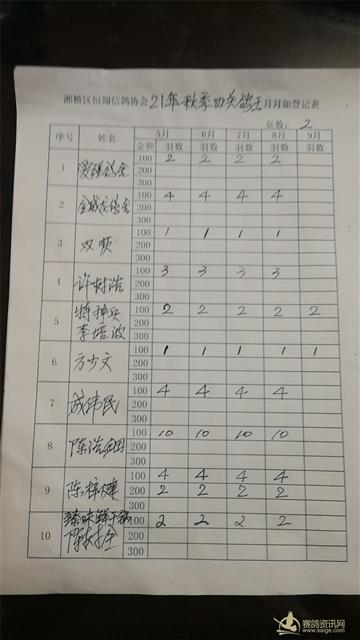 湘桥区恒翔信鸽协会21年秋季四关鸽王月月加登记表
页数: 2
序号 姓名 5月 6月 7月 8月 9月
金额 羽数 羽数 羽数 羽数 羽数
1 100 2 2 2 2
200
300
2 100 4 4 4 4
200
300
3 双顺 100 1 1 1 1
200
300
4 许树浩 100 3 3 3 3
200
300
5 特种兵 100 2 2 2 2 2
李培波 200
300
6 方少文 100 1 1 1 1 1
200
300
7 成伟民 100 4 4 4 4
200
300
8 陈浩 100 10 10 10 10
200
300
9 陈梓健 100 4 4 4 4
200 2 2 2 2
300
10 100 2 2 2 2
200
300
赛鸽资讯网
www.saige.com